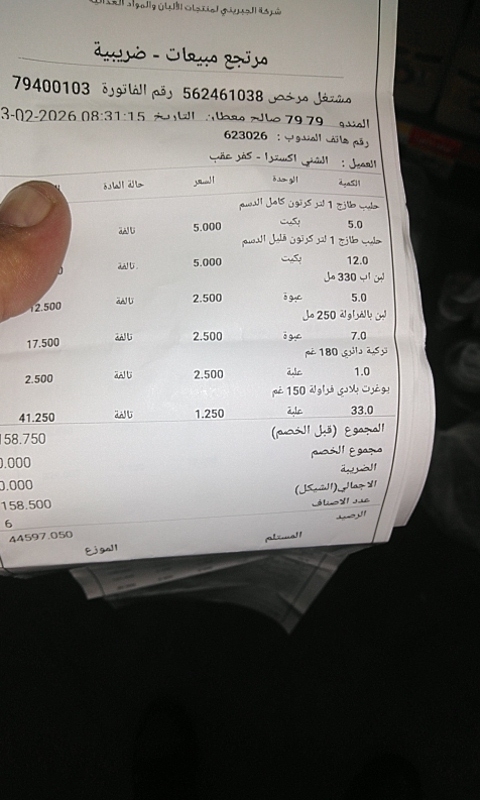 شركة الجبريني لمنتجات الألبان والمواد الغذائية
مرتجع مبيعات - ضريبية
مشتغل مرخص 562461038 رقم الفاتورة 79400103
المندوب 79 79 صالح معطان التاريخ 3-02-2026 08:31:15
رقم هاتف المندوب : 623026
العميل : الشني اكسترا - كفر عقب
الكمية الوحدة السعر حالة المادة
حليب طازج 1 لتر كرتون كامل الدسم
5.0 بكيت 5.000 تالفة
حليب طازج 1 لتر كرتون قليل الدسم
12.0 بكيت 5.000 تالفة
لبن اب 330 مل
5.0 عبوة 2.500 تالفة 12.500
لبن بالفراولة 250 مل
7.0 عبوة 2.500 تالفة 17.500
تركية دائري 180 غم
1.0 علبة 2.500 تالفة 2.500
يوغرت بلادي فراولة 150 غم
33.0 علبة 1.250 تالفة 41.250
المجموع (قبل الخصم) 158.750
مجموع الخصم 0.000
الضريبة 0.000
الاجمالي(الشيكل) 158.500
عدد الاصناف 6
الرصيد 44597.050
المستلم الموزع